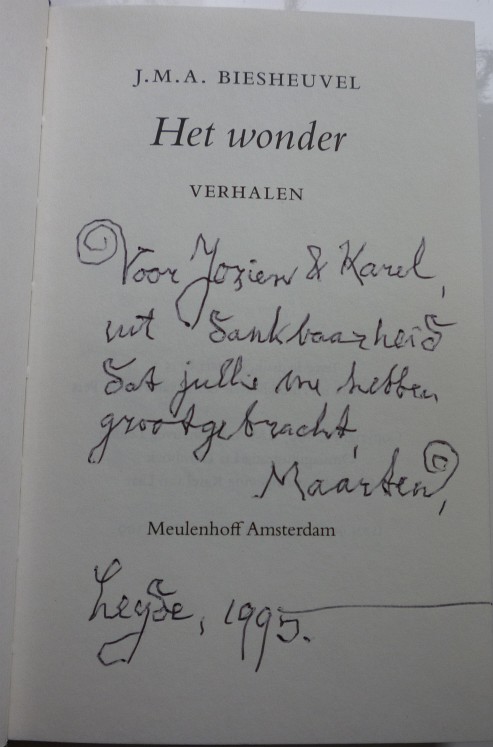 J.M.A. BIESHEUVEL
Het wonder
VERHALEN
Voor Jozien & Karel,
uit dankbaarheid
dat jullie me hebben
grootgebracht,
Maarten,
Meulenhoff Amsterdam
Leyde, 1995.